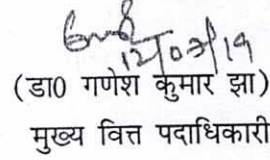 12/03/19
(डा0 गणेश कुमार झा)
मुख्य वित्त पदाधिकारी